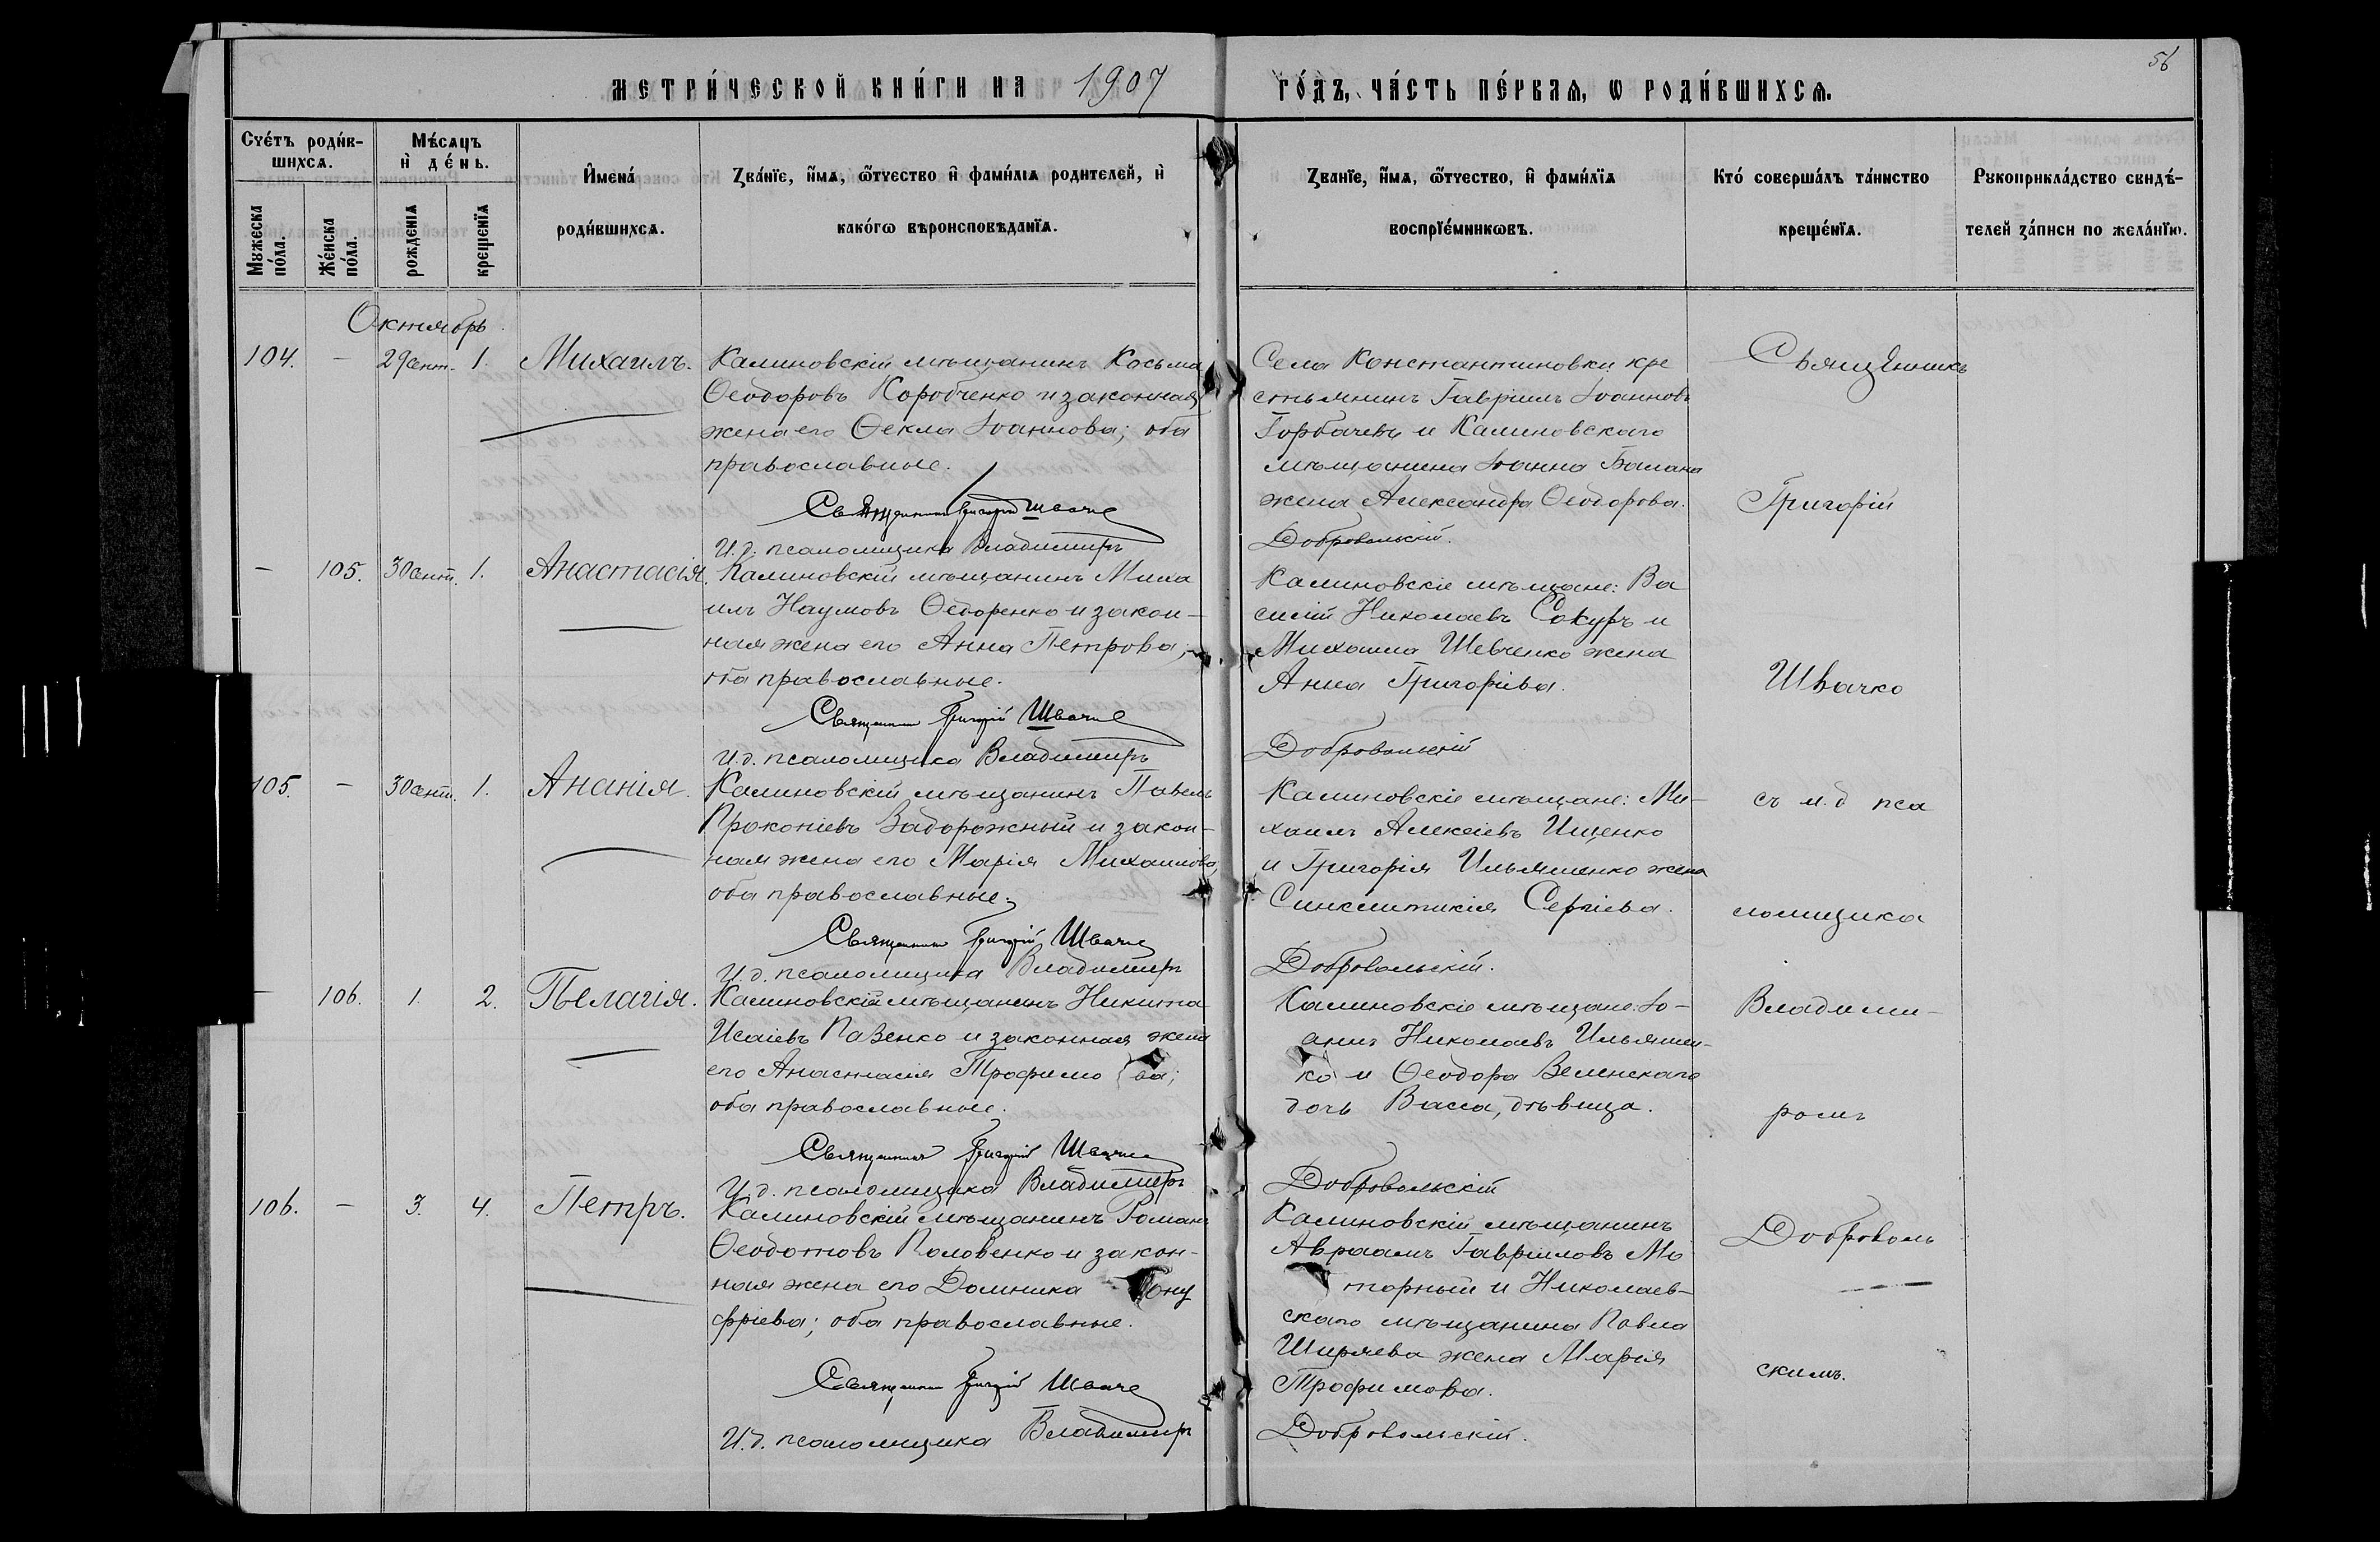 56
МЕТРИ́ЧЕСКОЙ КНИ́ГИ НА 1907 ГО́ДЪ, ЧА́СТЬ ПЕ́РВАѦ, Ѡ РОДИ́ВШИХСѦ.
Сче́тъ роди́в-
шихсѧ.
Мѣ́сѧцъ
и҆ де́нь.
Мꙋжеска
по́ла.
Же́нска
по́ла.
рожденїѧ
креще́нїѧ
И҆мена́
роди́вшихсѧ.
Зва́нїе, и҆́мѧ, ѻ҆́тчество и҆ фами́лїѧ родителей, и҆
како́гѡ вѣроисповѣданїѧ.
Званїе, и҆́мѧ, ѻ҆́тчество, и҆ фами́лїѧ
воспрїе́мникѡвъ.
Кто́ соверша́лъ та́инство
креще́нїѧ.
Рꙋкоприкла́дство свидѣ́-
телей за́писи по жела́нїю.
Октябрь
104. — 29 сент. 1. Михаилъ.
Калиновскій мѣщанинъ Косьма
Ѳеодоровъ Коробченко и законная
жена его Ѳекла Іоаннова; оба
православные.
Священникъ Григорій Швачко
И.д. псаломщика Владиміръ
Села Константиновки кре
стьянинъ Гавріилъ Іоанновъ
Горбачевъ и Калиновскаго
мѣщанина Іоанна
жена Александра Ѳеодорова.
Добровольскій.
— 105. 30 сент. 1. Анастасія.
Калиновскій мѣщанинъ Миха
илъ Наумовъ Ѳедоренко и закон-
ная жена его Анна Петрова;
оба православные.
Священникъ Григорій Швачко
И.д. псаломщика Владиміръ
Калиновскіе мѣщане: Ва
силій Николаевъ Сокуръ и
Михаила Шевченко жена
Анна Григоріева.
Добровольскій
105. — 30 сент. 1. Ананія.
Калиновскій мѣщанинъ Павелъ
Прокопіевъ Задорожный и закон-
ная жена его Марія Михаилова,
оба православные.
Священникъ Григорій Швачко
И.д. псаломщика Владиміръ
Калиновскіе мѣщане: Ми-
хаилъ Алексіевъ Ищенко
и Григорія Ильяшенко жена
Синклитикія Сергіева.
Добровольскій.
— 106. 1. 2. Пелагія.
Калиновскій мѣщанинъ Никита
Исаіевъ Павенко и законная жена
его Анастасія Трофимо ва;
оба православные.
Священникъ Григорій Швачко
И.д. псаломщика Владиміръ
Калиновскіе мѣщане: Іо-
аннъ Николаевъ Ильяшен-
ко и Ѳеодора Веленскаго
дочь Васса, дѣвица.
Добровольскій
106. — 3. 4. Петръ.
Калиновскій мѣщанинъ Романъ
Ѳеодотовъ Половенко и закон-
ная жена его Домника Ону
фріева; оба православные.
Священникъ Григорій Швачко
И.д. псаломщика Владиміръ
Калиновскій мѣщанинъ
Авраамъ Гавріиловъ Мо
торный и Николаев-
скаго мѣщанина Павла
Ширяева жена Марія
Трофимова.
Добровольскій.
Священникъ
Григорій
Швачко
съ и.д пса
ломщика
Владими-
ромъ
Доброволь
скимъ.